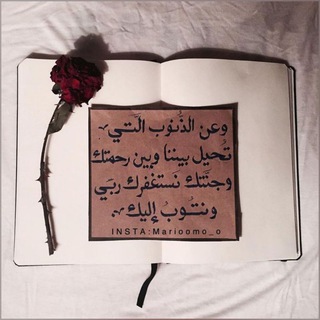 وعن الذنوب التي
تُحيل بيننا وبين رحمتك
وجنّتك نَستغفرك ربي
ونتوبُ إليك
INSTA:Marioomo_o